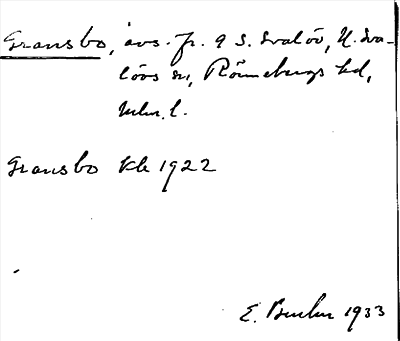 Gransbo, avs. fr. 9 S. Svalöv, N. Sva-
lövs sn, Rönnebergs hd,
Mlm. l.
Gransbo Kb 1922
E. 1933